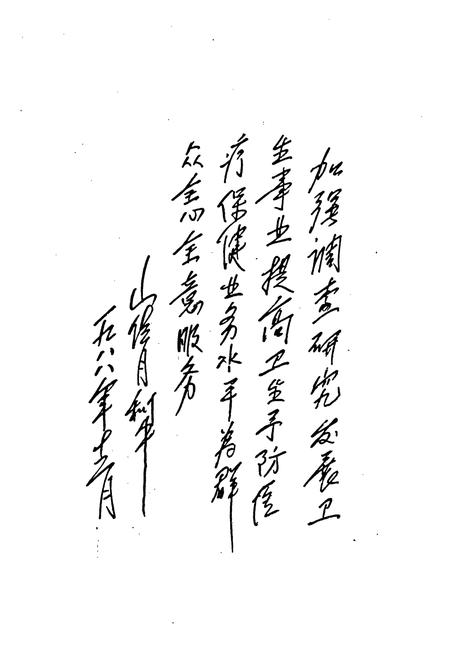 加强调查研究发展卫
生事业提高卫生予防医
疗保健业务水平为群
众全心全意服务
一九八八年十二月